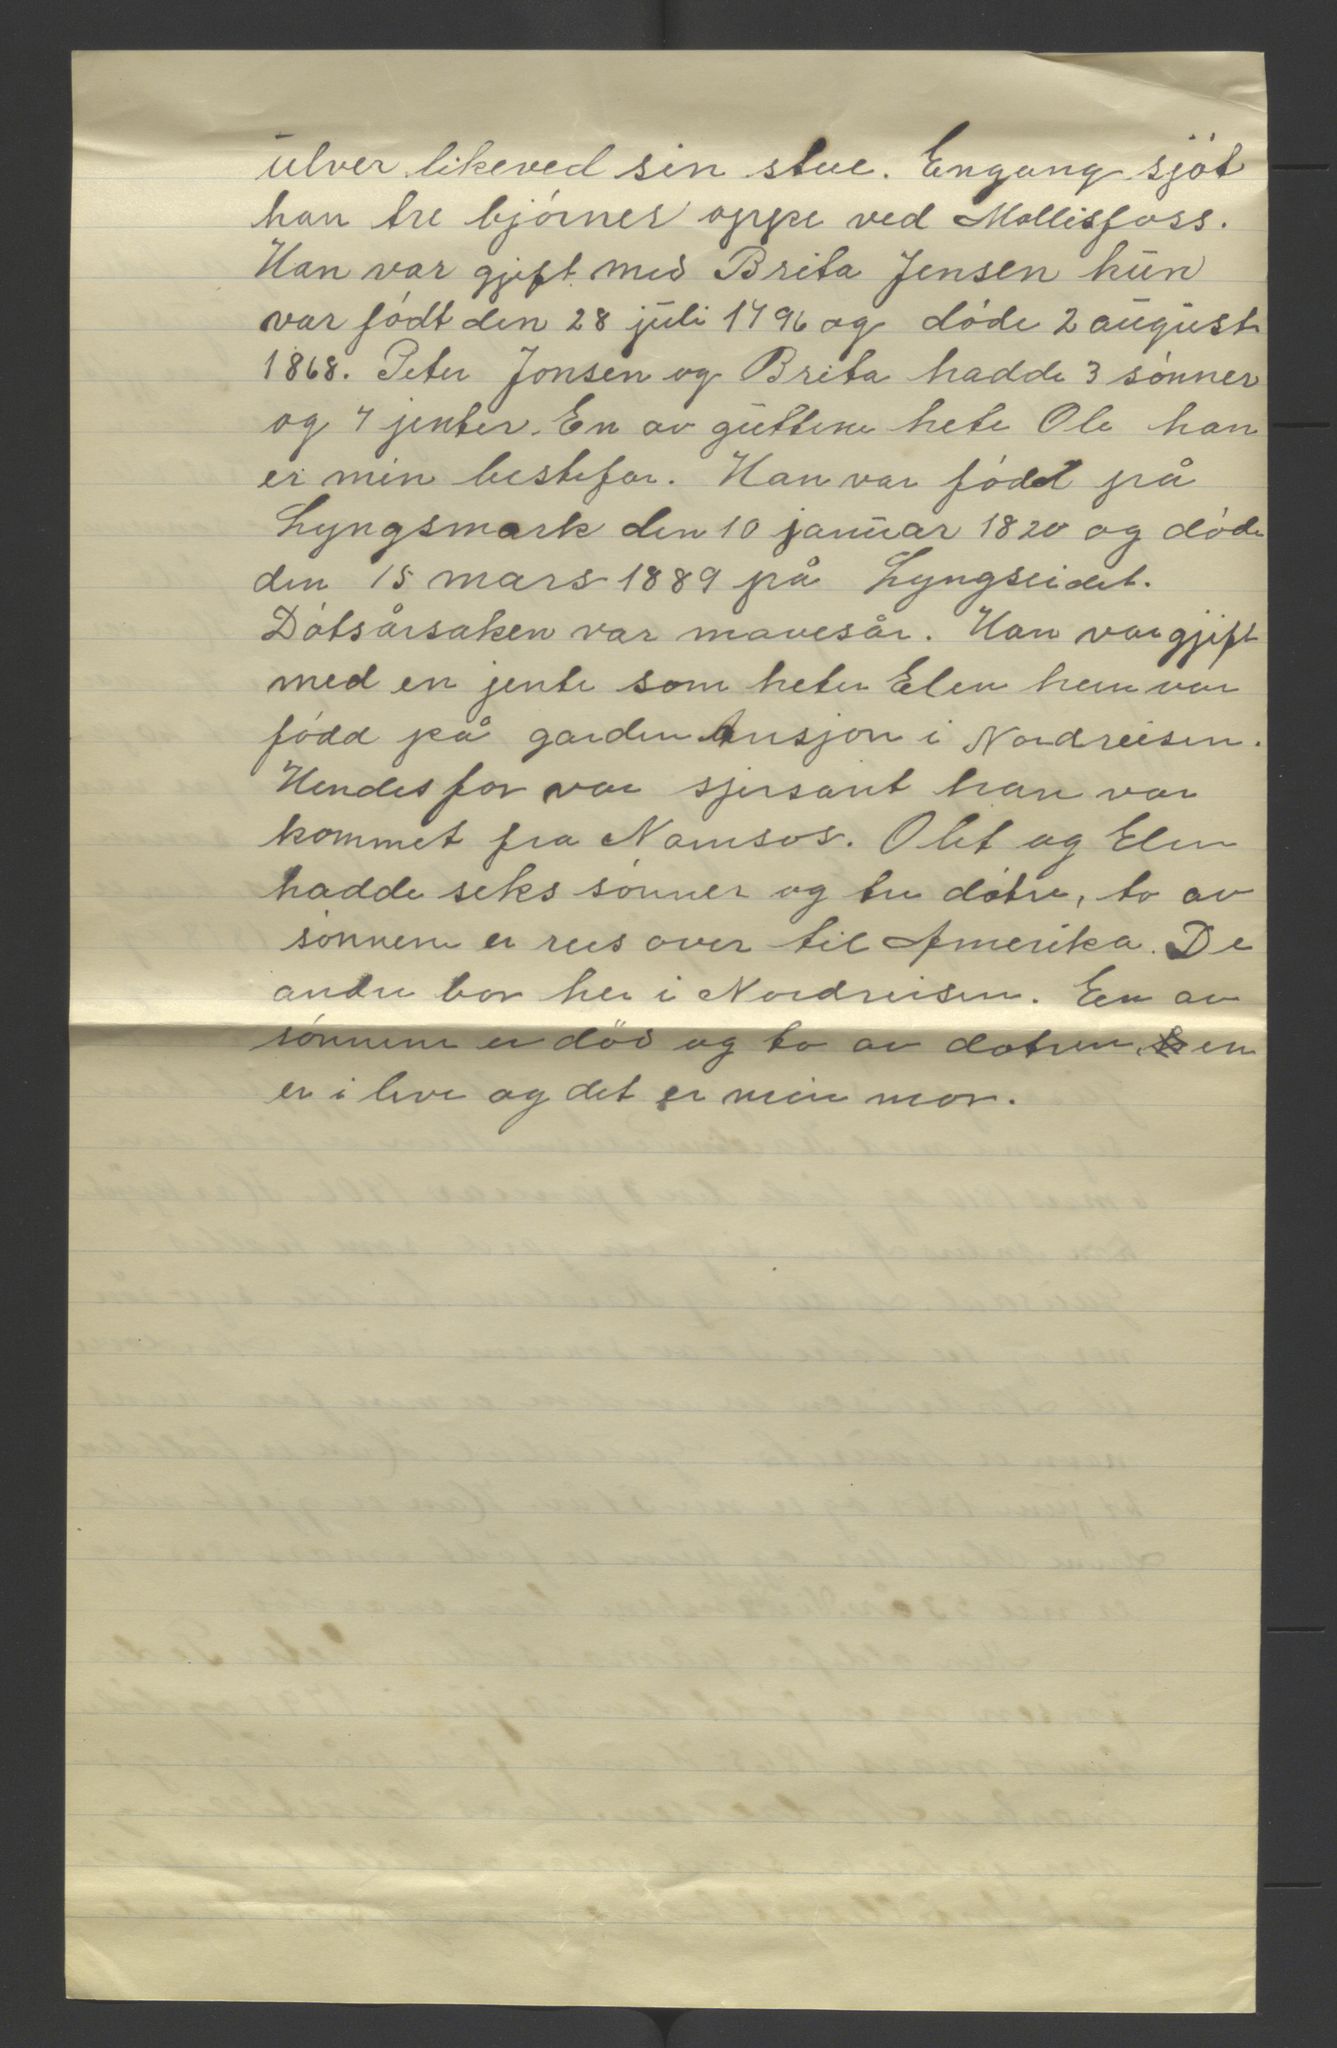 ulver likeved sin stue. Engang sjöt
han tre bjórner oppe ved Mollisfoss.
Han var gjift med Brita Jensen hun
var fódt den 28 juli 1796 og dóde 2 august
1868. Peter Jonsen og Brita hadde 3 sónner
og 7 jenter. En av guttene hete Ole han
er min bestefar. Han var fódd på
Lyngsmark den 10 januar 1820 og dóde
den 15 mars 1889 på Lyngseidet.
Dótsårsaken var mavesår. Han var gjift
med en jente som heter Elen hun var
fódd på garden Ansjon i Nordreisen.
Hendes far var sjersant han var
kommet fra Namsos. Olet og Elen
hadde seks sónner og tre dótre, to av
sónnene er reis over til Amerika. De
andre bor her i Nordreisen. Een av
sónnene er död og to av dotrene, en
er i live og det er min mor.